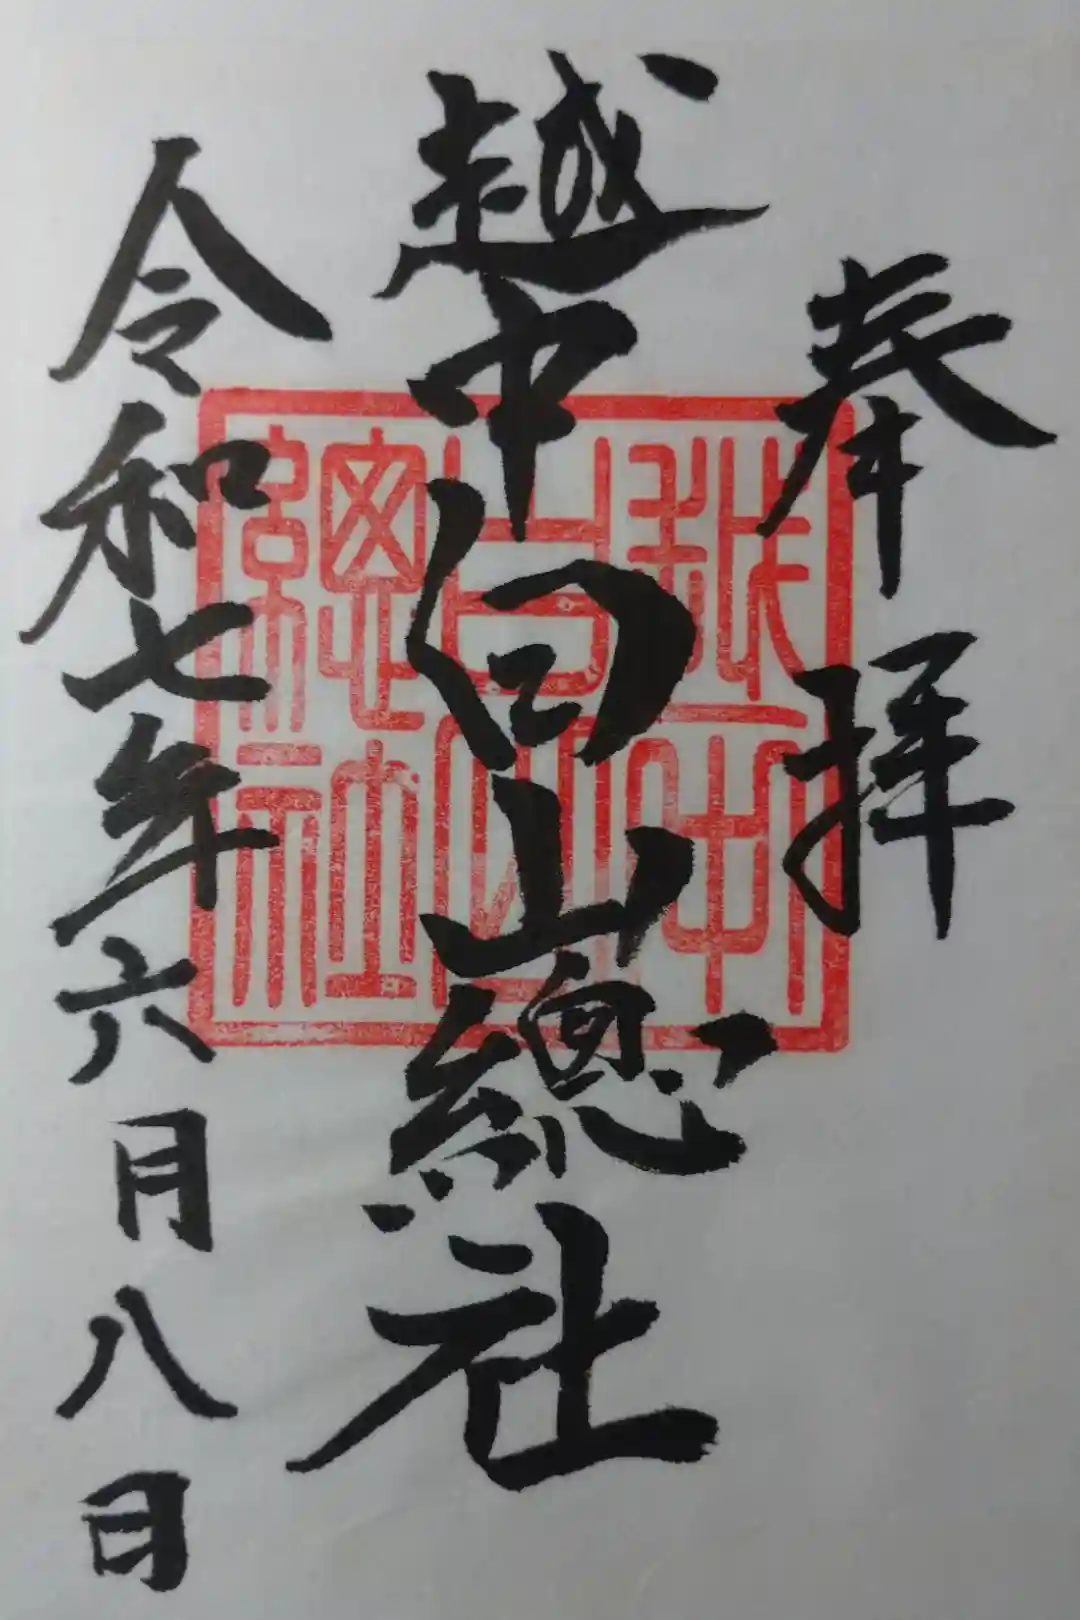 奉拝
越中白山總社
越中白山總社
令和七年六月八日